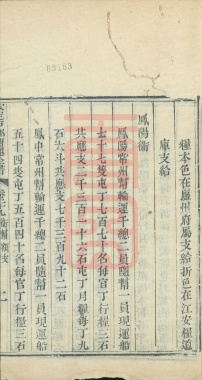 糧本色在廬州府屬支給折色在江安糧道
庫支給
鳳陽衛
鳳陽常州幫輸運千總二員隨幫一員現運船
七十七隻屯丁七百七十名每官丁行糧三石
共應支二千三百一十六石屯丁月糧每丁九
石六斗共應支七千三百九十二石
鳳中常州幫輸運千總二員隨幫一員現運船
五十四隻屯丁五百四十名每官丁行糧三石